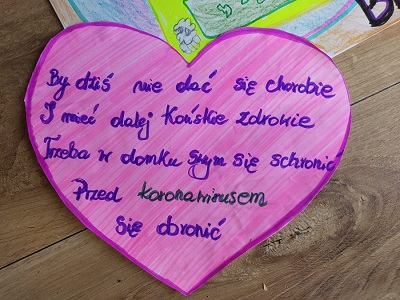 By dziś nie dać się chorobie
I mieć dalej Końskie zdrowie
Trzeba w domku swym się schronić
Przed koronawirusem
się obronić